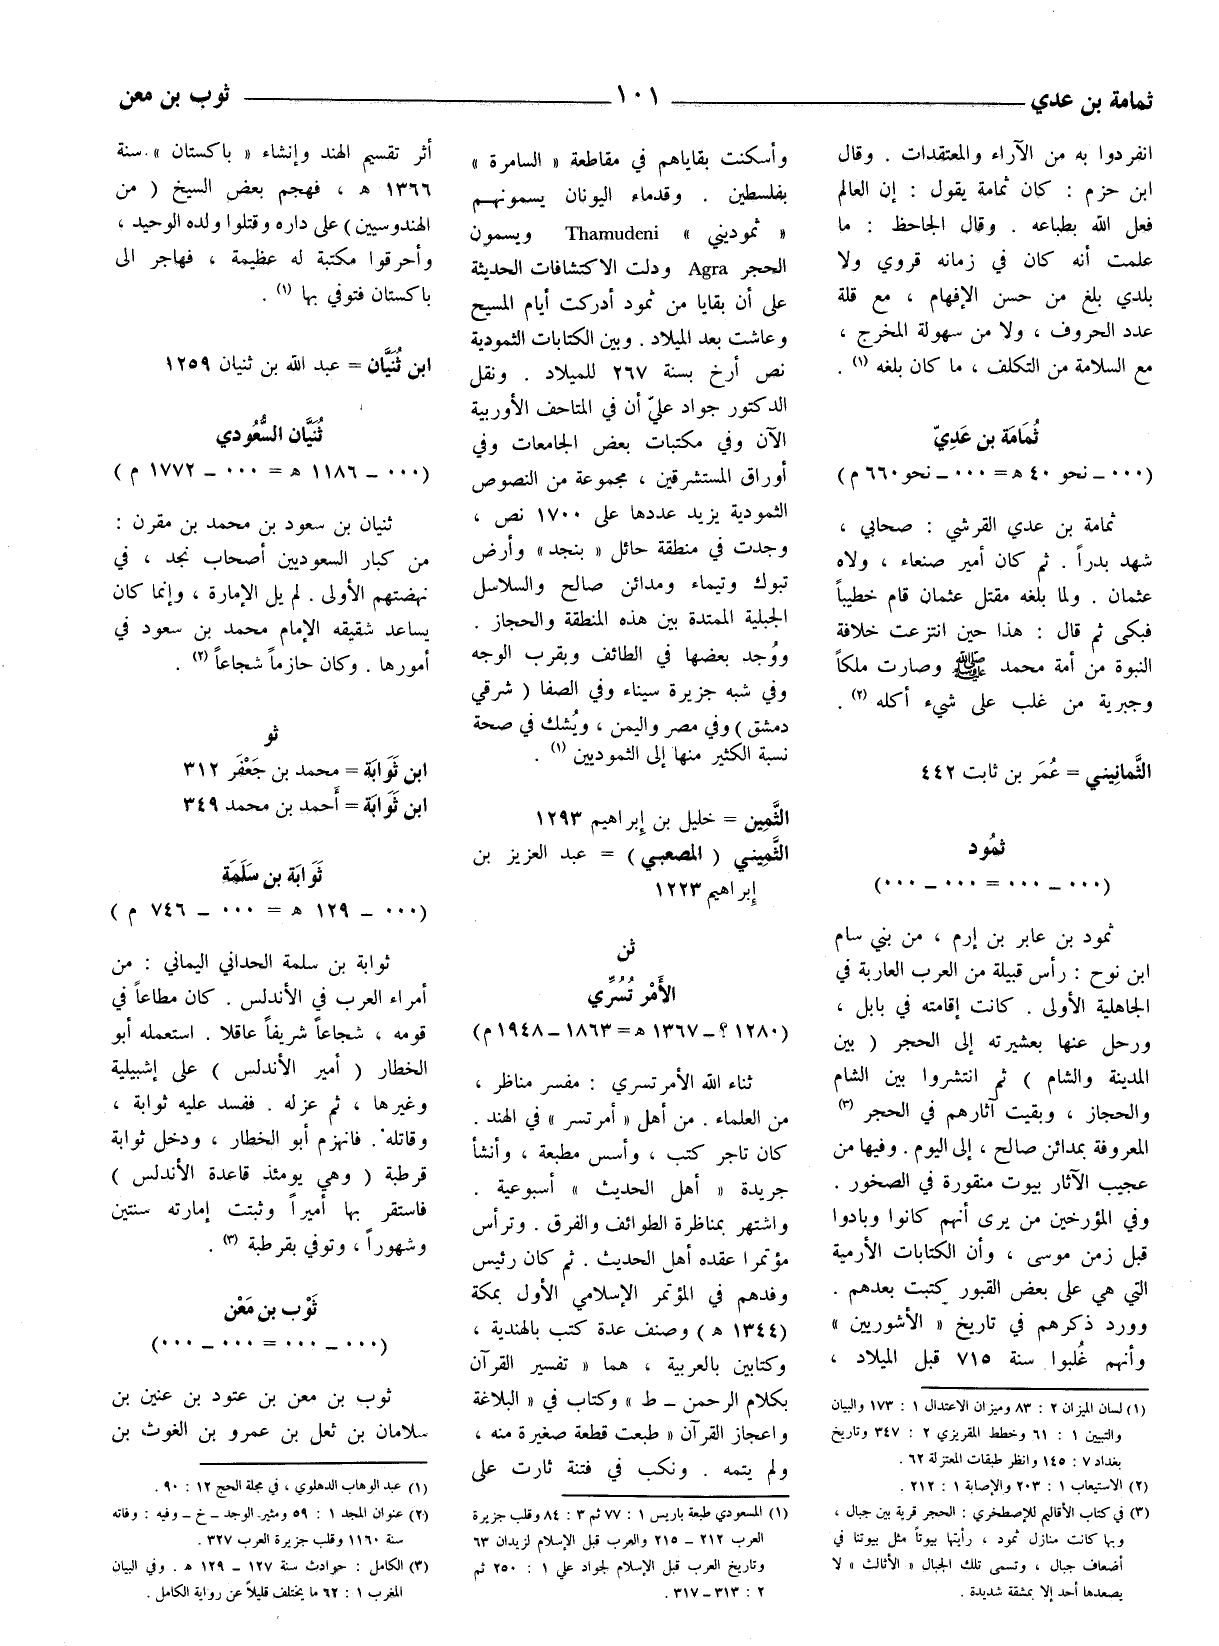 ثمامة بن عدي ١٠١ ثوب بن معن
انفردوا به من الآراء والمعتقدات . وقال
ابن حزم : كان ثمامة يقول : إن العالم
فعل الله بطباعه . وقال الجاحظ : ما
علمت أنه كان في زمانه قروي ولا
بلدي بلغ من حسن الإفهام ، مع قلة
عدد الحروف ، ولا من سهولة المخرج ،
مع السلامة من التكلف ، ما كان بلغه (١) .
ثُمَامَة بن عَدِيّ
(٠٠٠ ــ نحو ٤٠ هـ = ٠٠٠ ــ نحو ٦٦٠ م)
ثمامة بن عدي القرشي : صحابي ،
شهد بدراً . ثم كان أمير صنعاء ، ولاه
عثمان . ولما بلغه مقتل عثمان قام خطيباً
فبكى ثم قال : هذا حين انتزعت خلافة
النبوة من أمة محمد ﷺ وصارت ملكاً
وجبرية من غلب على شيء أكله (٢) .
الثَّمانِيني = عُمَر بن ثابت ٤٤٢
ثمُود
(٠٠٠ ــ ٠٠٠ = ٠٠٠ ــ ٠٠٠)
ثمود بن عابر بن إرم ، من بني سام
ابن نوح : رأس قبيلة من العرب العاربة في
الجاهلية الأولى . كانت إقامته في بابل ،
ورحل عنها بعشيرته إلى الحجر ( بين
المدينة والشام ) ثم انتشروا بين الشام
والحجاز ، وبقيت آثارهم في الحجر (٣)
المعروفة بمدائن صالح ، إلى اليوم . وفيها من
عجيب الآثار بيوت منقورة في الصخور .
وفي المؤرخين من يرى أنهم كانوا وبادوا
قبل زمن موسى ، وأن الكتابات الأرمية
التي هي على بعض القبور كتبت بعدهم .
وورد ذكرهم في تاريخ « الأشوريين »
وأنهم غُلبوا سنة ٧١٥ قبل الميلاد ،
(١) لسان الميزان ٢ : ٨٣ وميزان الاعتدال ١ : ١٧٣ والبيان
والتبيين ١ : ٦١ وخطط المقريزي ٢ : ٣٤٧ وتاريخ
بغداد ٧ : ١٤٥ وانظر طبقات المعتزلة ٦٢ .
(٢) الاستيعاب ١ : ٢٠٣ والإصابة ١ : ٢١٢ .
(٣) في كتاب الأقاليم للإصطخري : الحجر قرية بين جبال ،
وبها كانت منازل ثمود ، رأيتها بيوتاً مثل بيوتنا في
أضعاف جبال ، وتسمى تلك الجبال « الأثالث » لا
يصعدها أحد إلا بمشقة شديدة .
وأسكنت بقاياهم في مقاطعة « السامرة »
بفلسطين . وقدماء اليونان يسمونهم
« ثموديني » Thamudeni ويسمون
الحجر Agra ودلت الاكتشافات الحديثة
على أن بقايا من ثمود أدركت أيام المسيح
وعاشت بعد الميلاد . وبين الكتابات الثمودية
نص أرخ بسنة ٢٦٧ للميلاد . ونقل
الدكتور جواد عليّ أن في المتاحف الأوربية
الآن وفي مكتبات بعض الجامعات وفي
أوراق المستشرقين ، مجموعة من النصوص
الثمودية يزيد عددها على ١٧٠٠ نص ،
وجدت في منطقة حائل « بنجد » وأرض
تبوك وتيماء ومدائن صالح والسلاسل
الجبلية الممتدة بين هذه المنطقة والحجاز .
ووُجد بعضها في الطائف وبقرب الوجه
وفي شبه جزيرة سيناء وفي الصفا ( شرقي
دمشق ) وفي مصر واليمن ، ويُشك في صحة
نسبة الكثير منها إلى الثموديين (١) .
الثَّمِين = خليل بن إبراهيم ١٢٩٣
الثَّمِيني ( المصعبي ) = عبد العزيز بن
إبراهيم ١٢٢٣
ثن
الأَمْرِ تْسَرِي
(١٢٨٠ ؟ ــ ١٣٦٧ هـ = ١٨٦٣ ــ ١٩٤٨ م)
ثناء الله الأمرتسري : مفسر مناظر ،
من العلماء . من أهل « أمرتسر » في الهند .
كان تاجر كتب ، وأسس مطبعة ، وأنشأ
جريدة « أهل الحديث » أسبوعية .
واشتهر بمناظرة الطوائف والفرق . وترأس
مؤتمرا عقده أهل الحديث . ثم كان رئيس
وفدهم في المؤتمر الإسلامي الأول بمكة
(١٣٤٤ هـ ) وصنف عدة كتب بالهندية ،
وكتابين بالعربية ، هما « تفسير القرآن
بكلام الرحمن ــ ط » وكتاب في « البلاغة
واعجاز القرآن « طبعت قطعة صغيرة منه ،
ولم يتمه . ونكب في فتنة ثارت على
(١) المسعودي طبعة باريس ١ : ٧٧ ثم ٣ : ٨٤ وقلب جزيرة
العرب ٢١٢ ــ ٢١٥ والعرب قبل الإسلام لزيدان ٦٣
وتاريخ العرب قبل الإسلام لجواد علي ١ : ٢٥٠ ثم
٢ : ٣١٣ ــ ٣١٧ .
أثر تقسيم الهند وإنشاء « باكستان » سنة
١٣٦٦ هـ ، فهجم بعض السيخ ( من
الهندوسيين ) على داره وقتلوا ولده الوحيد ،
وأحرقوا مكتبة له عظيمة ، فهاجر الى
باكستان فتوفي بها (١) .
ابن ثُنَيَّان = عبد الله بن ثنيان ١٢٥٩
ثُنَيَّان السُّعُودي
(٠٠٠ ــ ١١٨٦ هـ = ٠٠٠ ــ ١٧٧٢ م )
ثنيان بن سعود بن محمد بن مقرن :
من كبار السعوديين أصحاب نجد ، في
نهضتهم الأولى . لم يل الإمارة ، وإنما كان
يساعد شقيقه الإمام محمد بن سعود في
أمورها . وكان حازماً شجاعاً (٢) .
ثو
ابن ثَوَابَة = محمد بن جَعْفَر ٣١٢
ابن ثَوَابَة = أَحمد بن محمد ٣٤٩
ثَوَابَة بن سَلَمَة
(٠٠٠ ــ ١٢٩ هـ = ٠٠٠ ــ ٧٤٦ م )
ثوابة بن سلمة الحداني اليماني : من
أمراء العرب في الأندلس . كان مطاعاً في
قومه ، شجاعاً شريفاً عاقلا . استعمله أبو
الخطار ( أمير الأندلس ) على إشبيلية
وغيرها ، ثم عزله . ففسد عليه ثوابة ،
وقاتله . فانهزم أبو الخطار ، ودخل ثوابة
قرطبة ( وهي يومئذ قاعدة الأندلس )
فاستقر بها أميراً وثبتت إمارته سنتين
وشهوراً ، وتوفي بقرطبة (٣) .
ثَوْب بن مَعْن
(٠٠٠ ــ ٠٠٠ = ٠٠٠ ــ ٠٠٠)
ثوب بن معن بن عتود بن عنين بن
سلامان بن ثعل بن عمرو بن الغوث بن
(١) عبد الوهاب الدهلوي ، في مجلة الحج ١٢ : ٩٠ .
(٢) عنوان المجد ١ : ٥٩ ومثير الوجد ــ خ ــ وفيه : وفاته
سنة ١١٦٠ وقلب جزيرة العرب ٣٢٧ .
(٣) الكامل : حوادث سنة ١٢٧ ــ ١٢٩ هـ . وفي البيان
المغرب ١ : ٦٢ ما يختلف قليلاً عن رواية الكامل .